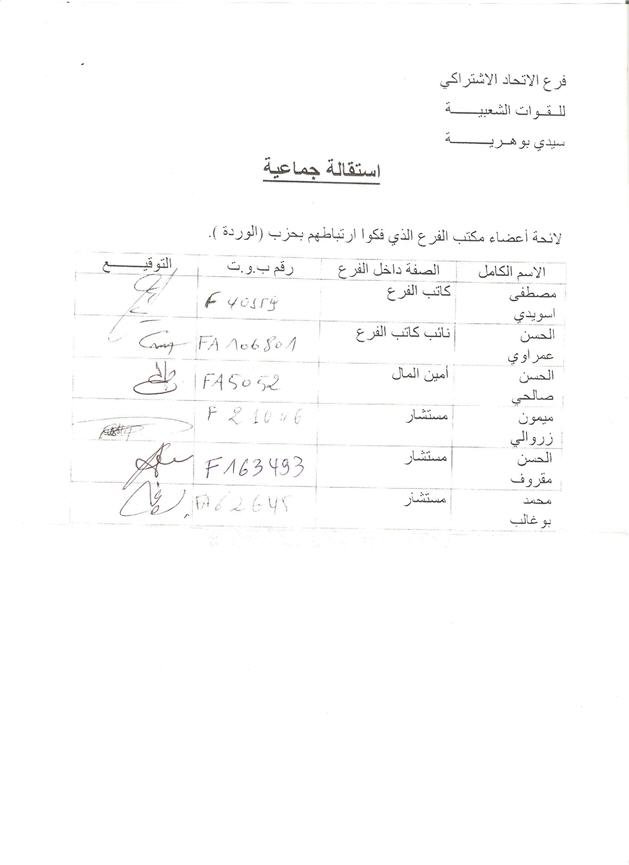 فرع الاتحاد الاشتراكي
للـقـوات الشعبيـــــة
سيدي بوهريـــــة
استقالة جماعية
لائحة أعضاء مكتب الفرع الذي فكوا ارتباطهم بحزب (الوردة ).
الاسم الكامل الصفة داخل الفرع رقم ب.و.ت التوقيـــع
مصطفى اسويدي كاتب الفرع F 40159
الحسن عمراوي نائب كاتب الفرع FA106801
الحسن صالحي أمين المال FA5052
ميمون زروالي مستشار
الحسن مقروف مستشار F163493
محمد بوغالب مستشار FA62645